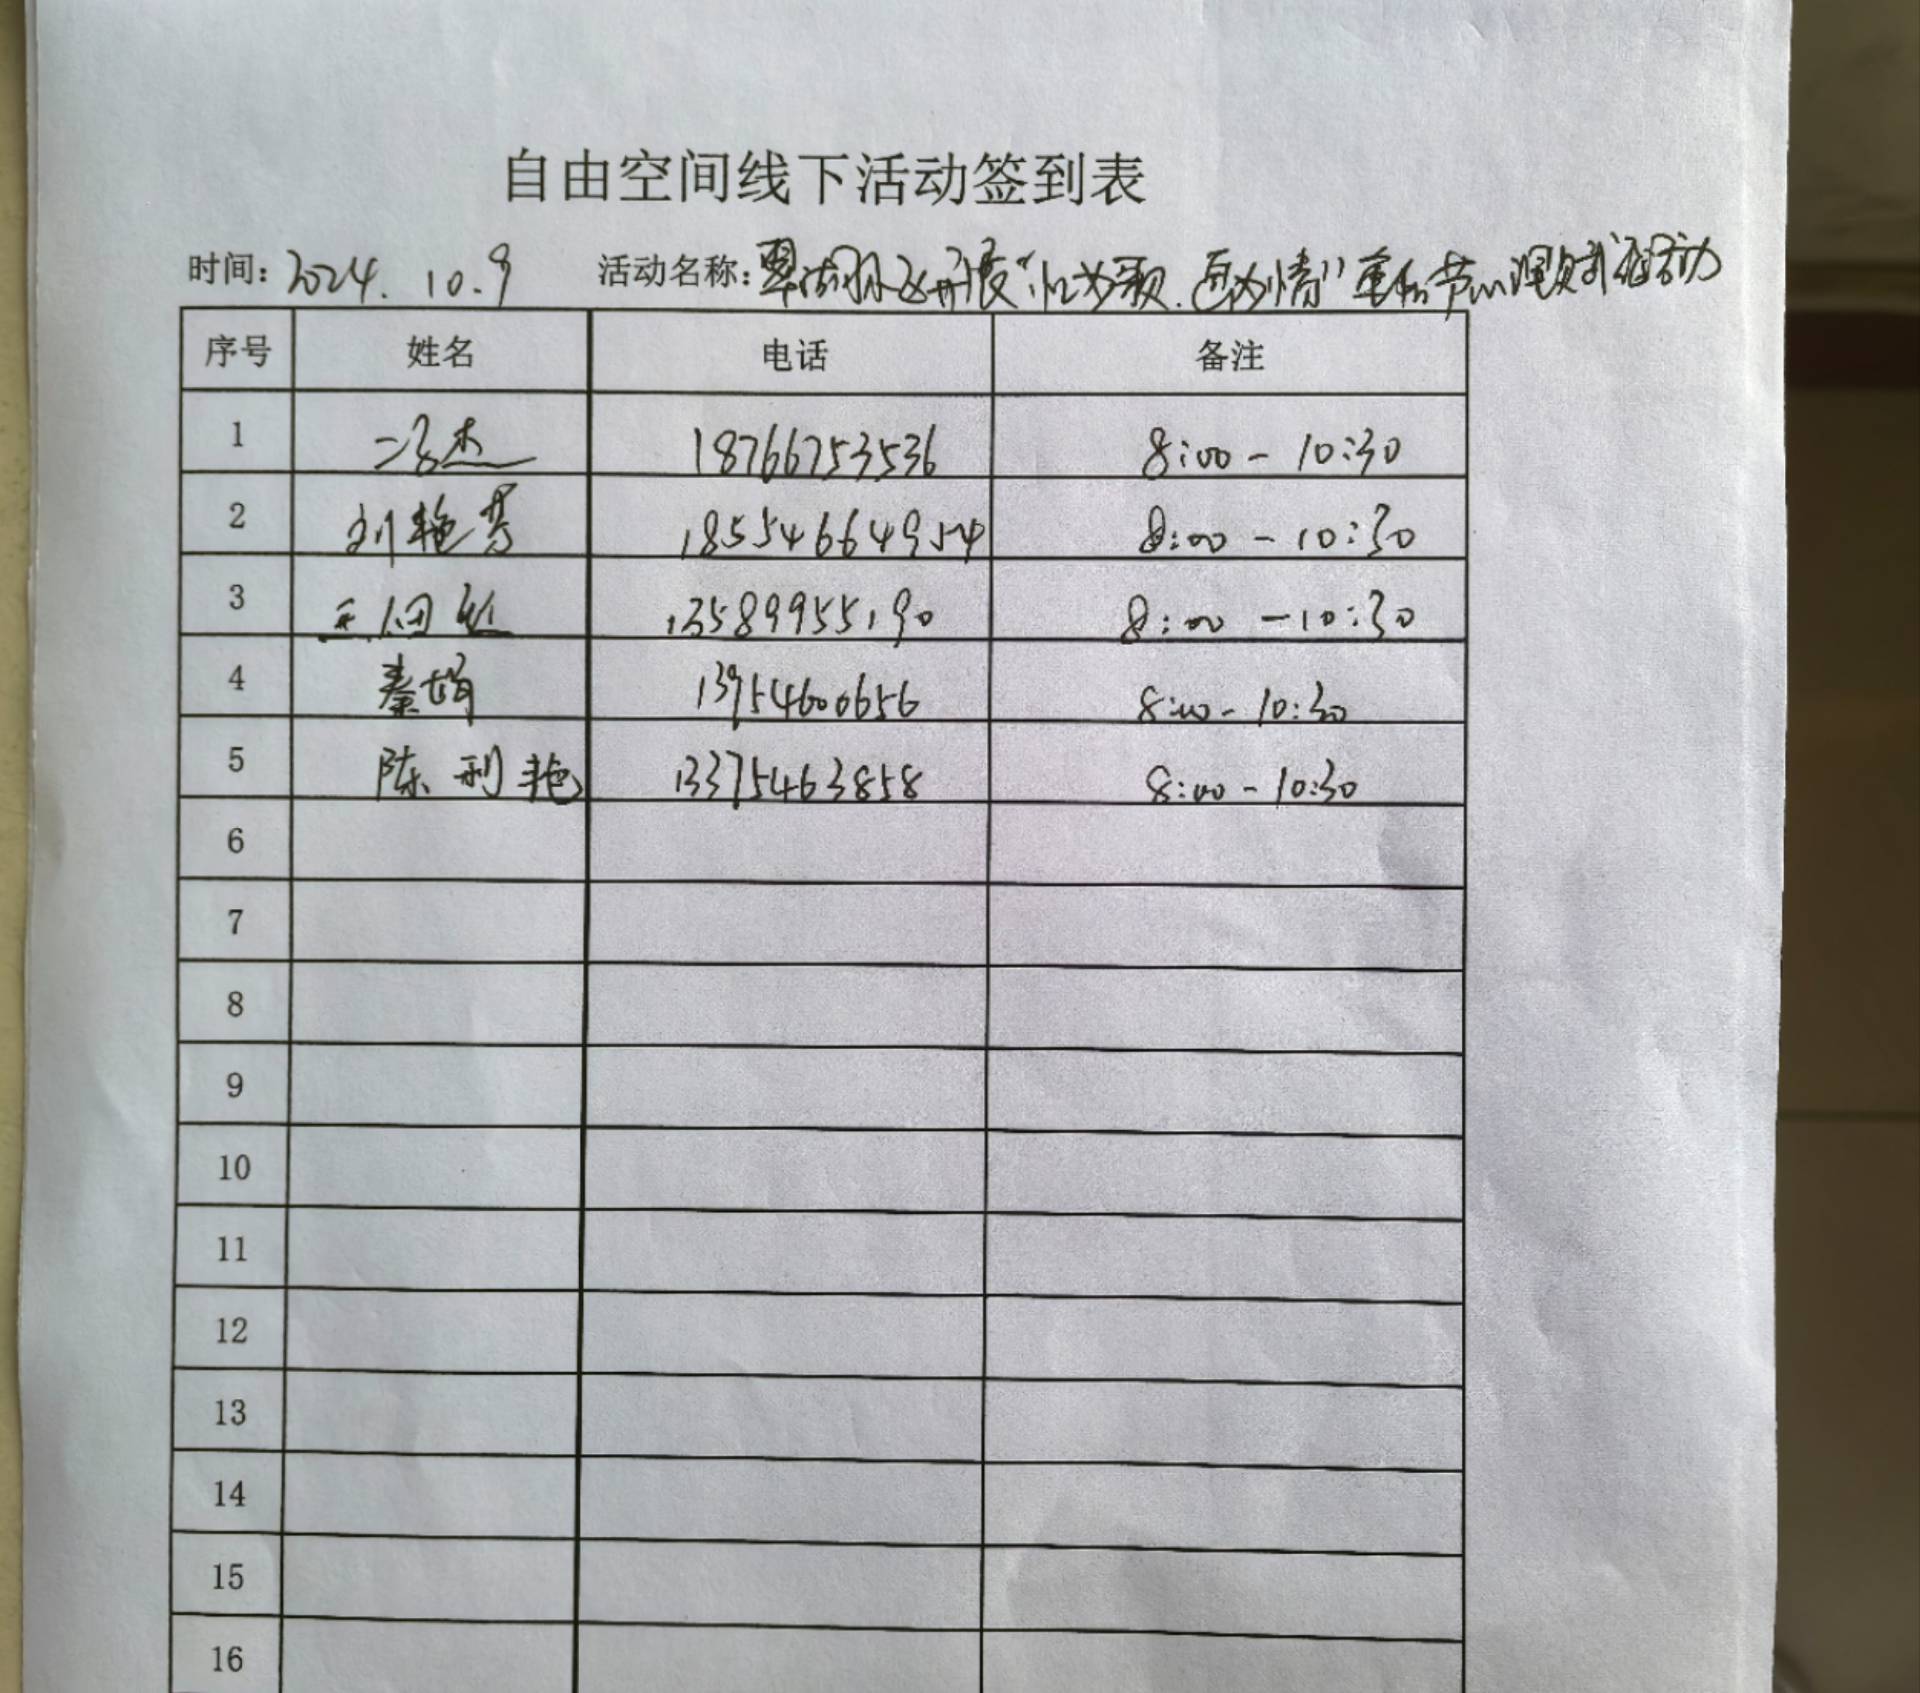 自由空间线下活动签到表
时间: 2024. 10. 9 活动名称: 翠湖社区开展“忆为歌.为情”重阳节活动
序号 姓名 电话 备注
1 冯杰 18766753536 8:00 - 10:30
2 刘艳芳 18554664954 8:00 - 10:30
3 王 13589955190 8:00 - 10:30
4 秦娟 13954600656 8:00 - 10:30
5 陈利艳 13375463858 8:00 - 10:30
6
7
8
9
10
11
12
13
14
15
16